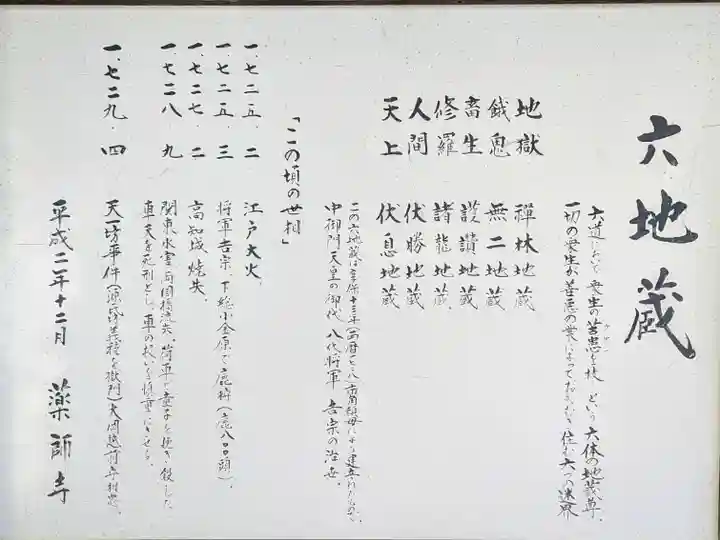 六地蔵
六道において衆生の苦患を救うという六体の地蔵尊。
一切の衆生が善悪の業によっておもむき住む六つの迷界
地獄 禅林地蔵
餓鬼 無二地蔵
畜生 護讃地蔵
修羅 諸龍地蔵
人間 伏勝地蔵
天上 伏息地蔵
この六地蔵は享保十三年(西暦一七二八)
中御門天皇の御代 八代将軍 吉宗の治世。
「この頃の世相」
一七二五.二 江戸大火。
一七二五.三 将軍吉宗、下総小金原で鹿狩(鹿八〇〇頭)。
一七二七.二 高知城焼失。
一七二八.九 関東水害、両国橋流失。荷車で童子を挽き殺した
車夫を死刑とし、車の扱いを慎重にさせる。
一七二九.四 天一坊事件(源氏坊義種を獄門)大岡越前守忠相。
平成二年十二月 薬師寺